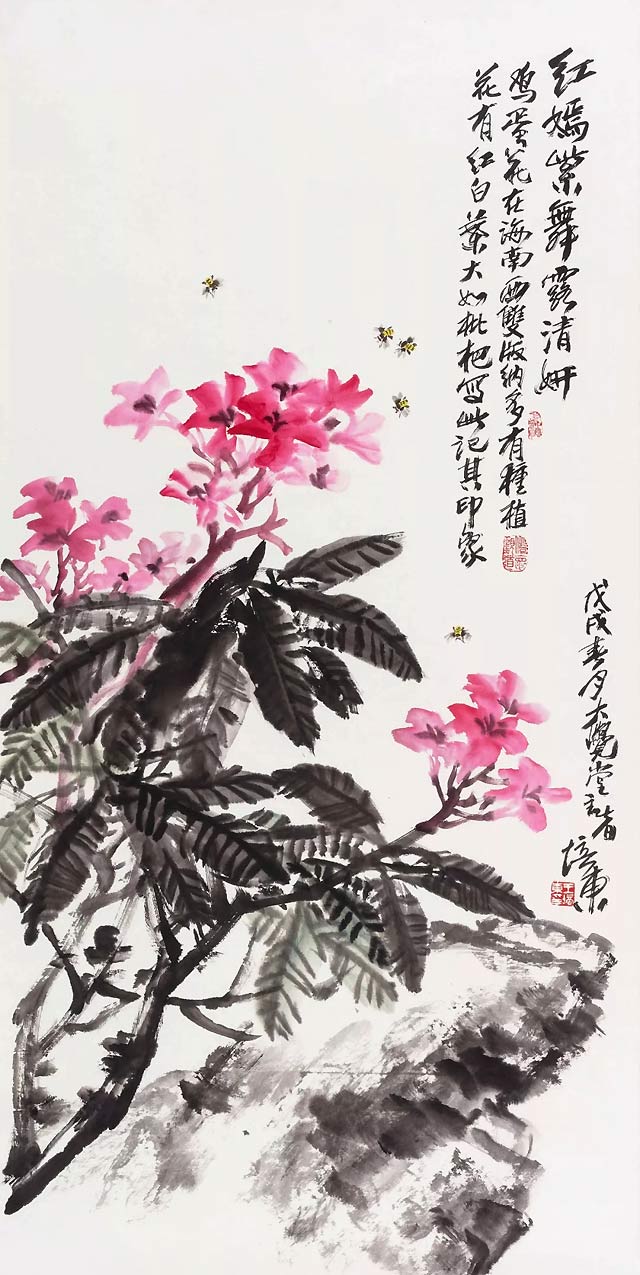 红嫣紫舞露清妍
鸡蛋花在海南西雙版纳多有種植
花有红白葉大如枇杷写此记其印象
戊戌春月大覺堂記者
培東